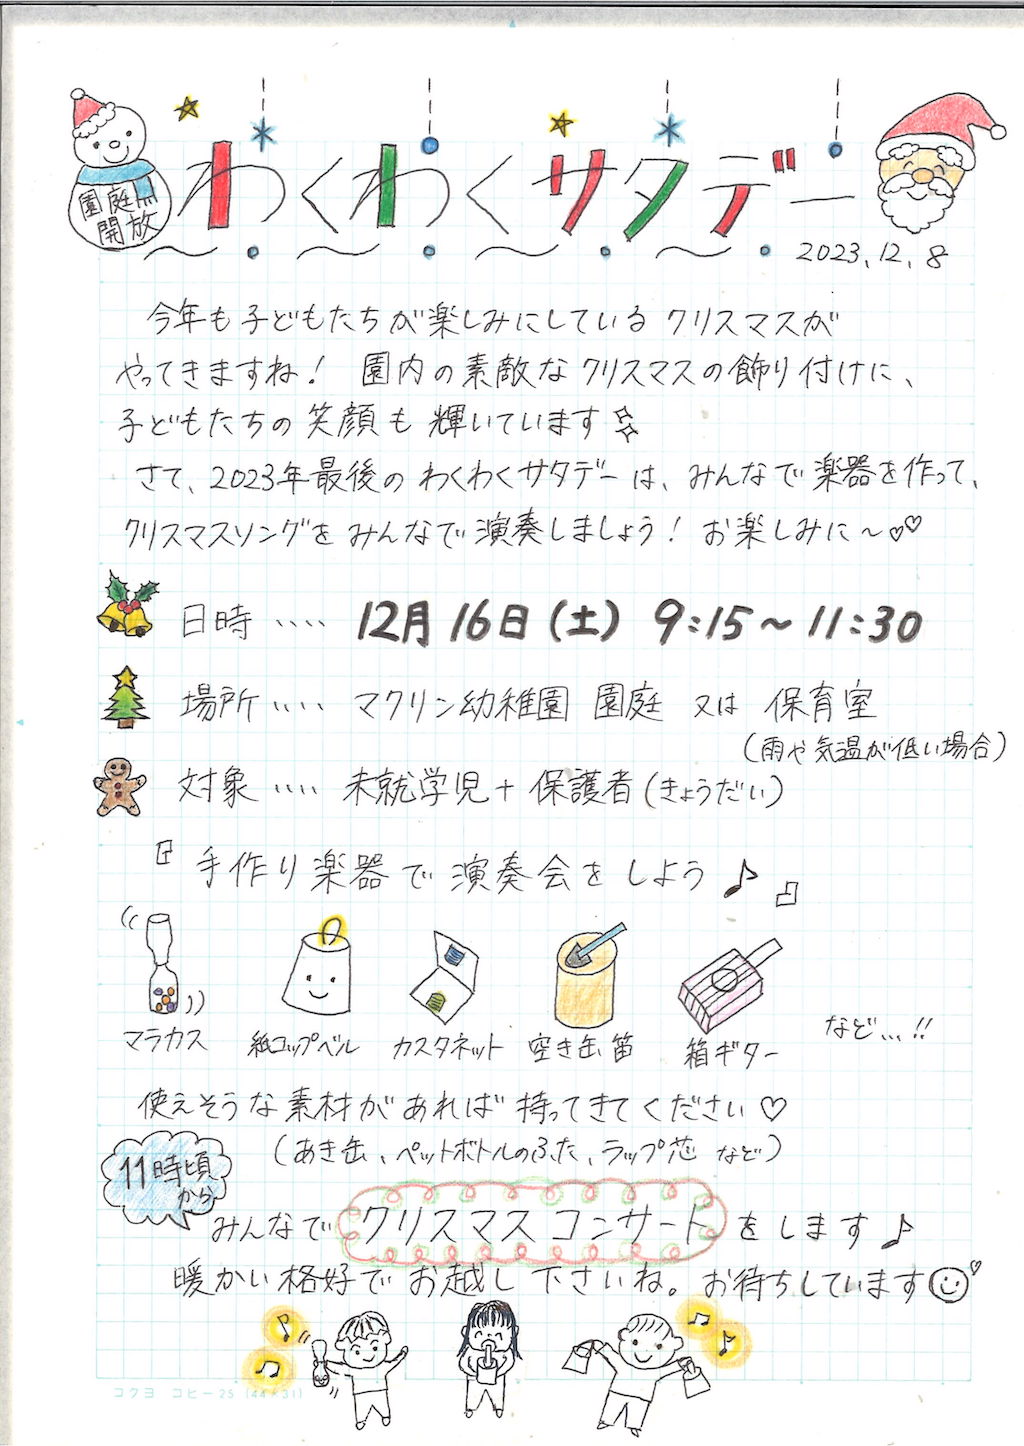 園庭
開放
わくわくサタデー
2023.12.8
今年も子どもたちが楽しみにしているクリスマスが
やってきますね！ 園内の素敵なクリスマスの飾り付けに、
子どもたちの笑顔も輝いています
さて、2023年最後のわくわくサタデーは、みんなで楽器を作って、
クリスマスソングをみんなで演奏しましょう！ お楽しみに～♡♡
日時‥‥ 12月16日(土) 9:15～11:30
場所‥‥ マクリン幼稚園 園庭 又は 保育室
(雨や気温が低い場合)
対象‥‥ 未就学児+保護者(きょうだい)
『手作り楽器で演奏会をしよう♪』
マラカス 紙コップベル カスタネット 空き缶笛 箱ギター など…!!
使えそうな素材があれば持ってきてください♡
(あき缶、ペットボトルのふた、ラップ芯 など)
11時頃
から
みんなでクリスマスコンサートをします♪
暖かい格好でお越し下さいね。お待ちしています
コクヨ コヒー25 (44×31)